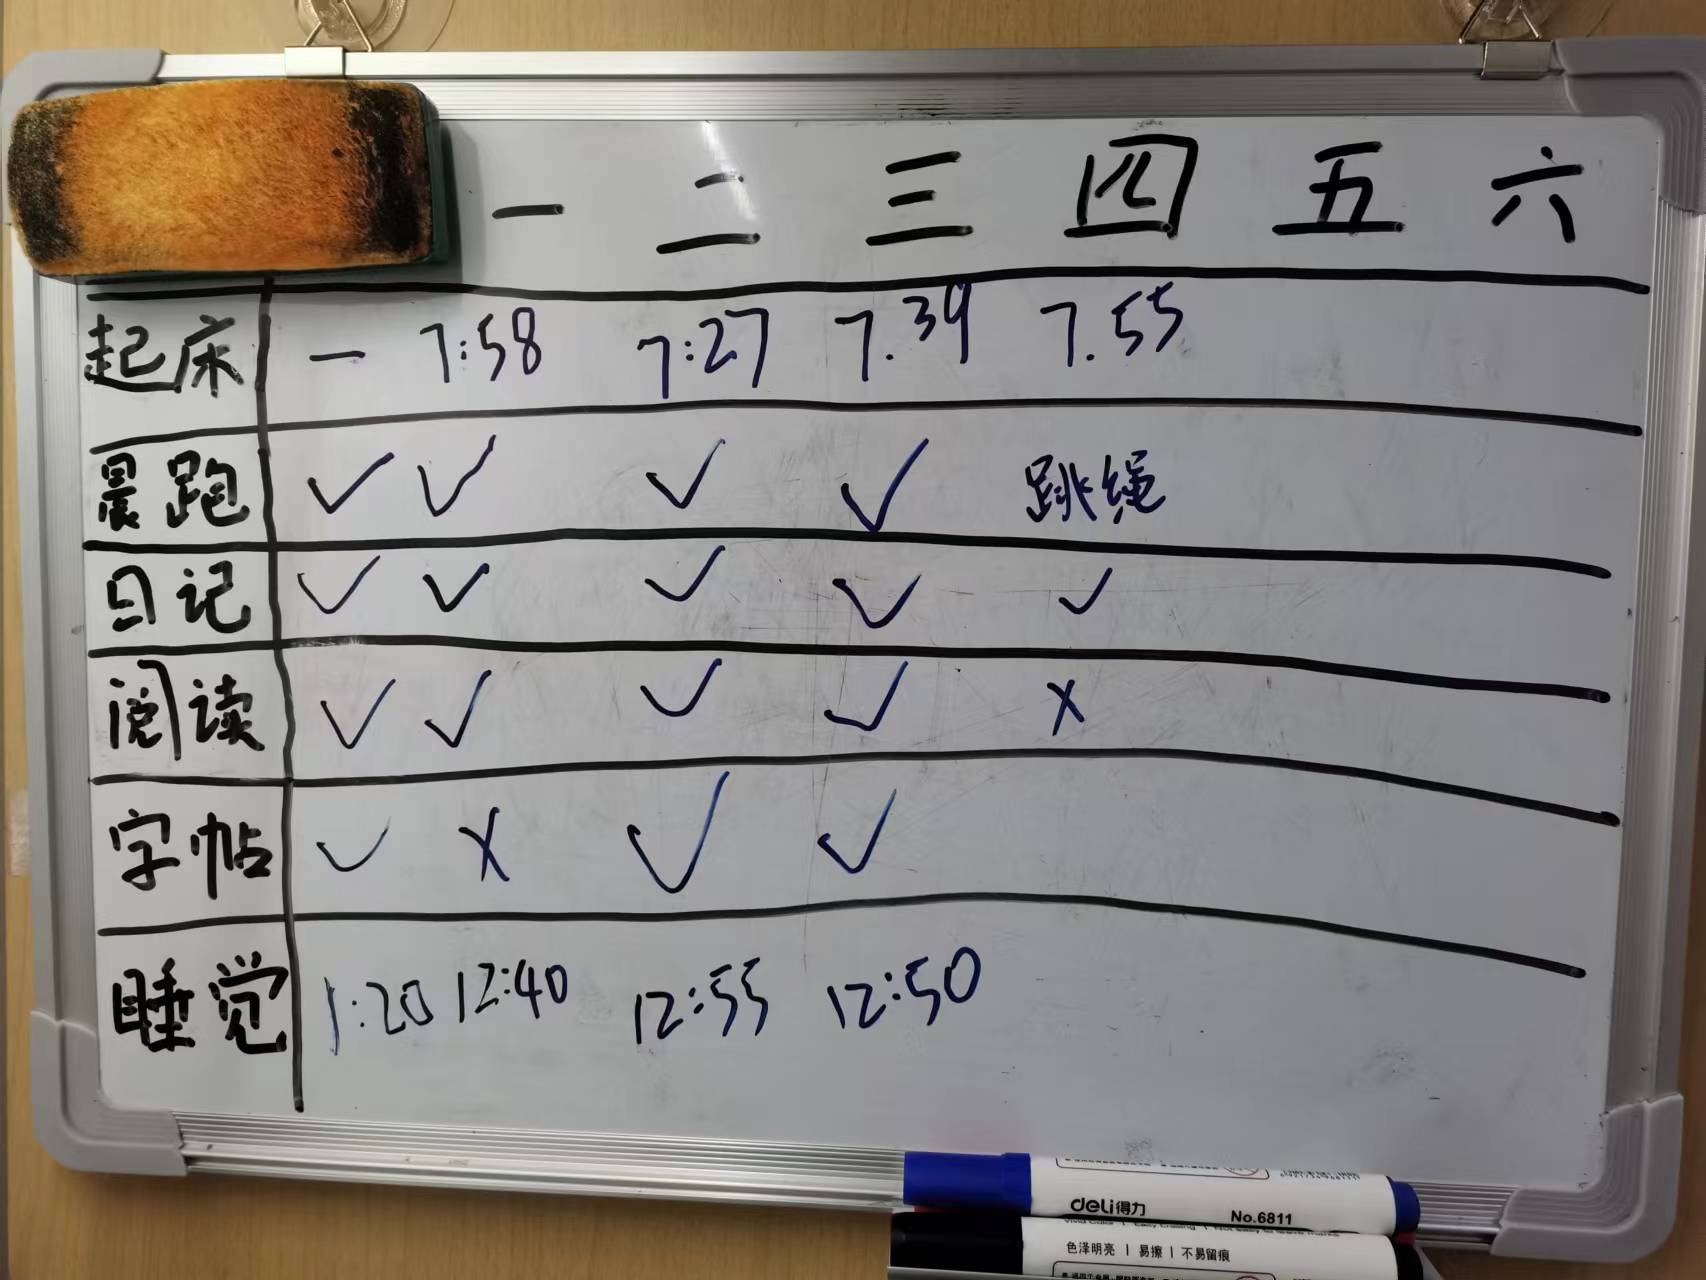 一 二 三 四 五 六
起床 — 7:58 7:27 7.39 7.55
晨跑 ✓ ✓ ✓ ✓ 跳绳
日记 ✓ ✓ ✓ ✓ ✓
阅读 ✓ ✓ ✓ ✓ x
字帖 ✓ x ✓ ✓
睡觉 1:20 12:40 12:55 12:50
deli得力 No.6811
色泽明亮 | 易擦 | 不易留痕